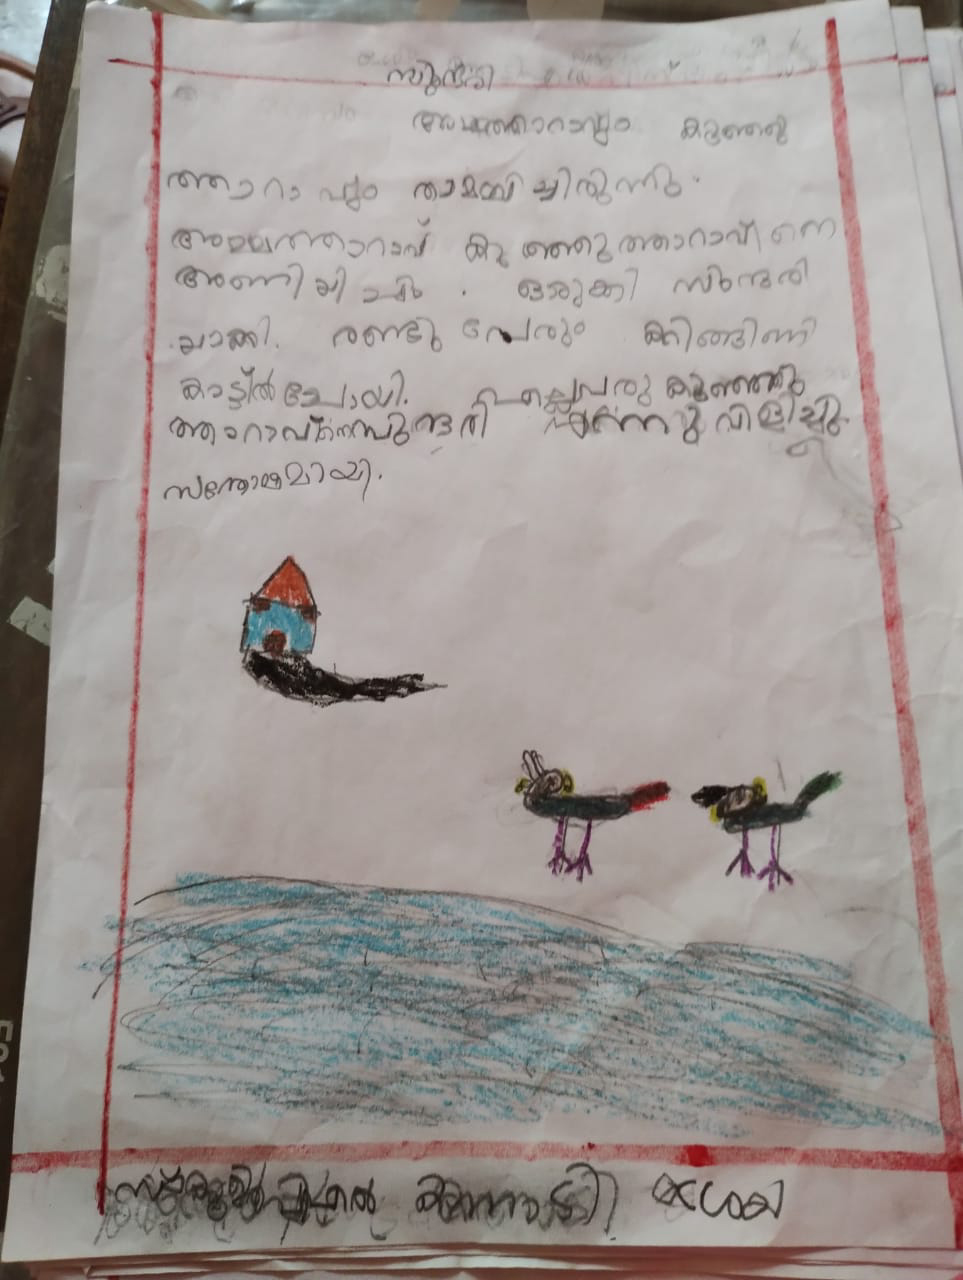 സുന്ദരി
അമ്മത്താറാവും കുഞ്ഞു
ത്താറാവും താമസിച്ചിരുന്നു.
അമ്മത്താറാവ് കുഞ്ഞുതാറാവിനെ
അണിയിച്ചു. ഒരുക്കി സുന്ദരി
യാക്കി. രണ്ടു പേരും കിങ്ങിണി
കാട്ടിൽ പോയി. എല്ലാവരും കുഞ്ഞു
ത്താറാവിനെ സുന്ദരി എന്നു വിളിച്ചു.
സന്തോഷമായി.